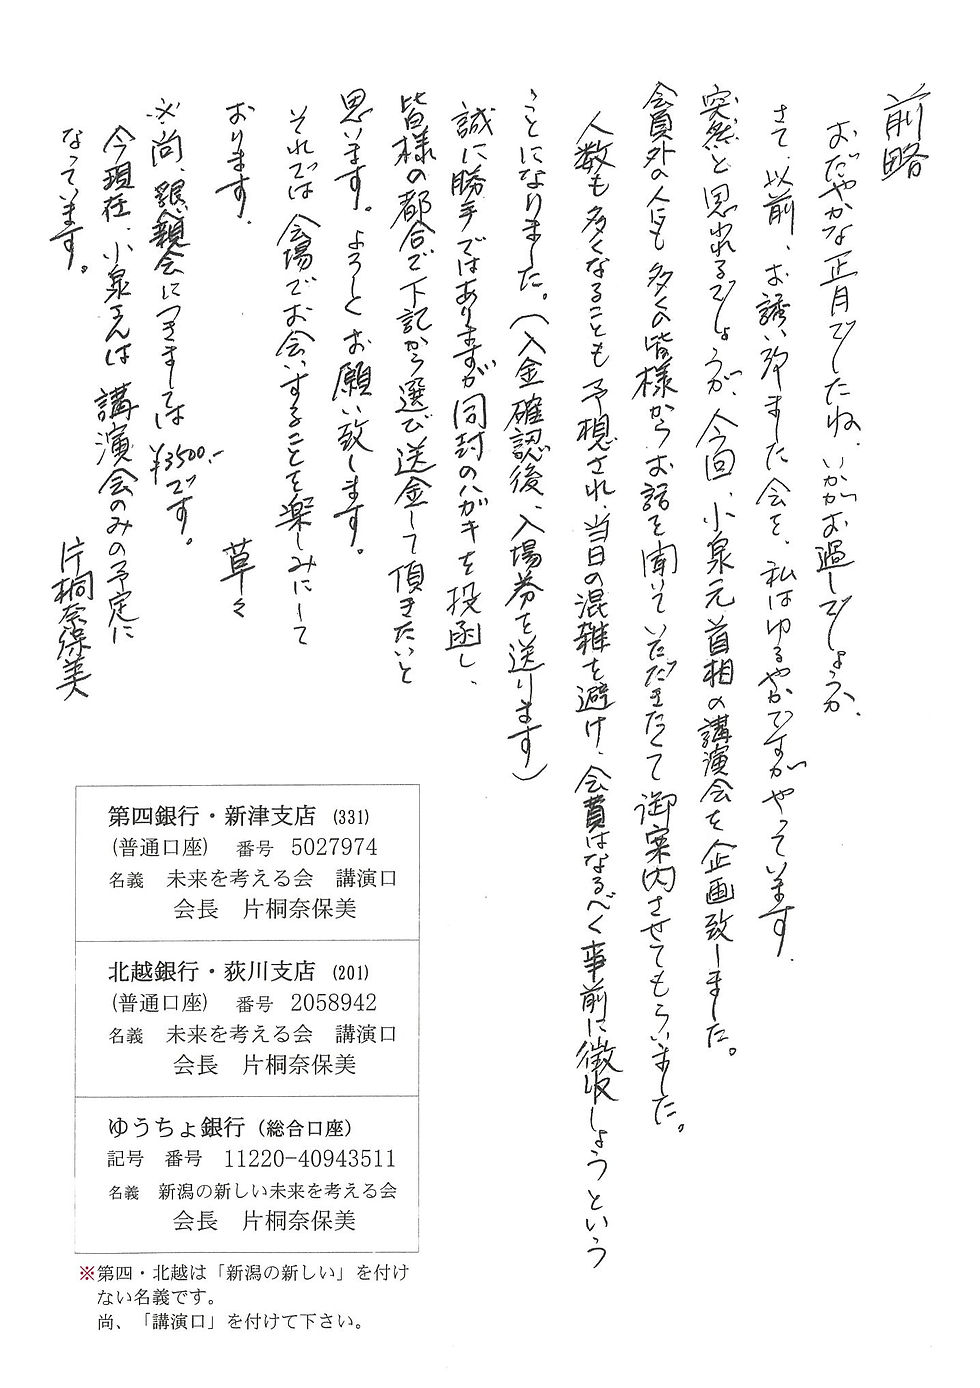 前略
おだやかな正月でしたね、いかがお過しでしょうか、
さて、以前、お誘い致ました会を、私はゆるやかですがやっています。
突然と思われるでしょうが、今回、小泉元首相の講演会を企画致しました。
会員外の人にも多くの皆様からお話を聞いていただきたくて御案内させてもらいました。
人数も多くなることも予想され、当日の混雑を避け、会費はなるべく事前に徴収しようという
ことになりました。(入金確認後、入場券を送ります)
誠に勝手ではありますが同封のハガキを投函し、
皆様の都合で下記から選び送金して頂きたいと
思います。よろしくお願い致します。
それでは会場でお会いすることを楽しみにして
おります。
草々
※尚、懇親会につきましては¥3500.-です。
今現在、小泉さんは講演会のみの予定に
なっています。
片桐奈保美
第四銀行・新津支店 (331)
(普通口座) 番号 5027974
名義 未来を考える会 講演口
会長 片桐奈保美
北越銀行・荻川支店 (201)
(普通口座) 番号 2058942
名義 未来を考える会 講演口
会長 片桐奈保美
ゆうちょ銀行 (総合口座)
記号 番号 11220-40943511
名義 新潟の新しい未来を考える会
会長 片桐奈保美
※第四・北越は「新潟の新しい」を付け
ない名義です。
尚、「講演口」を付けて下さい。